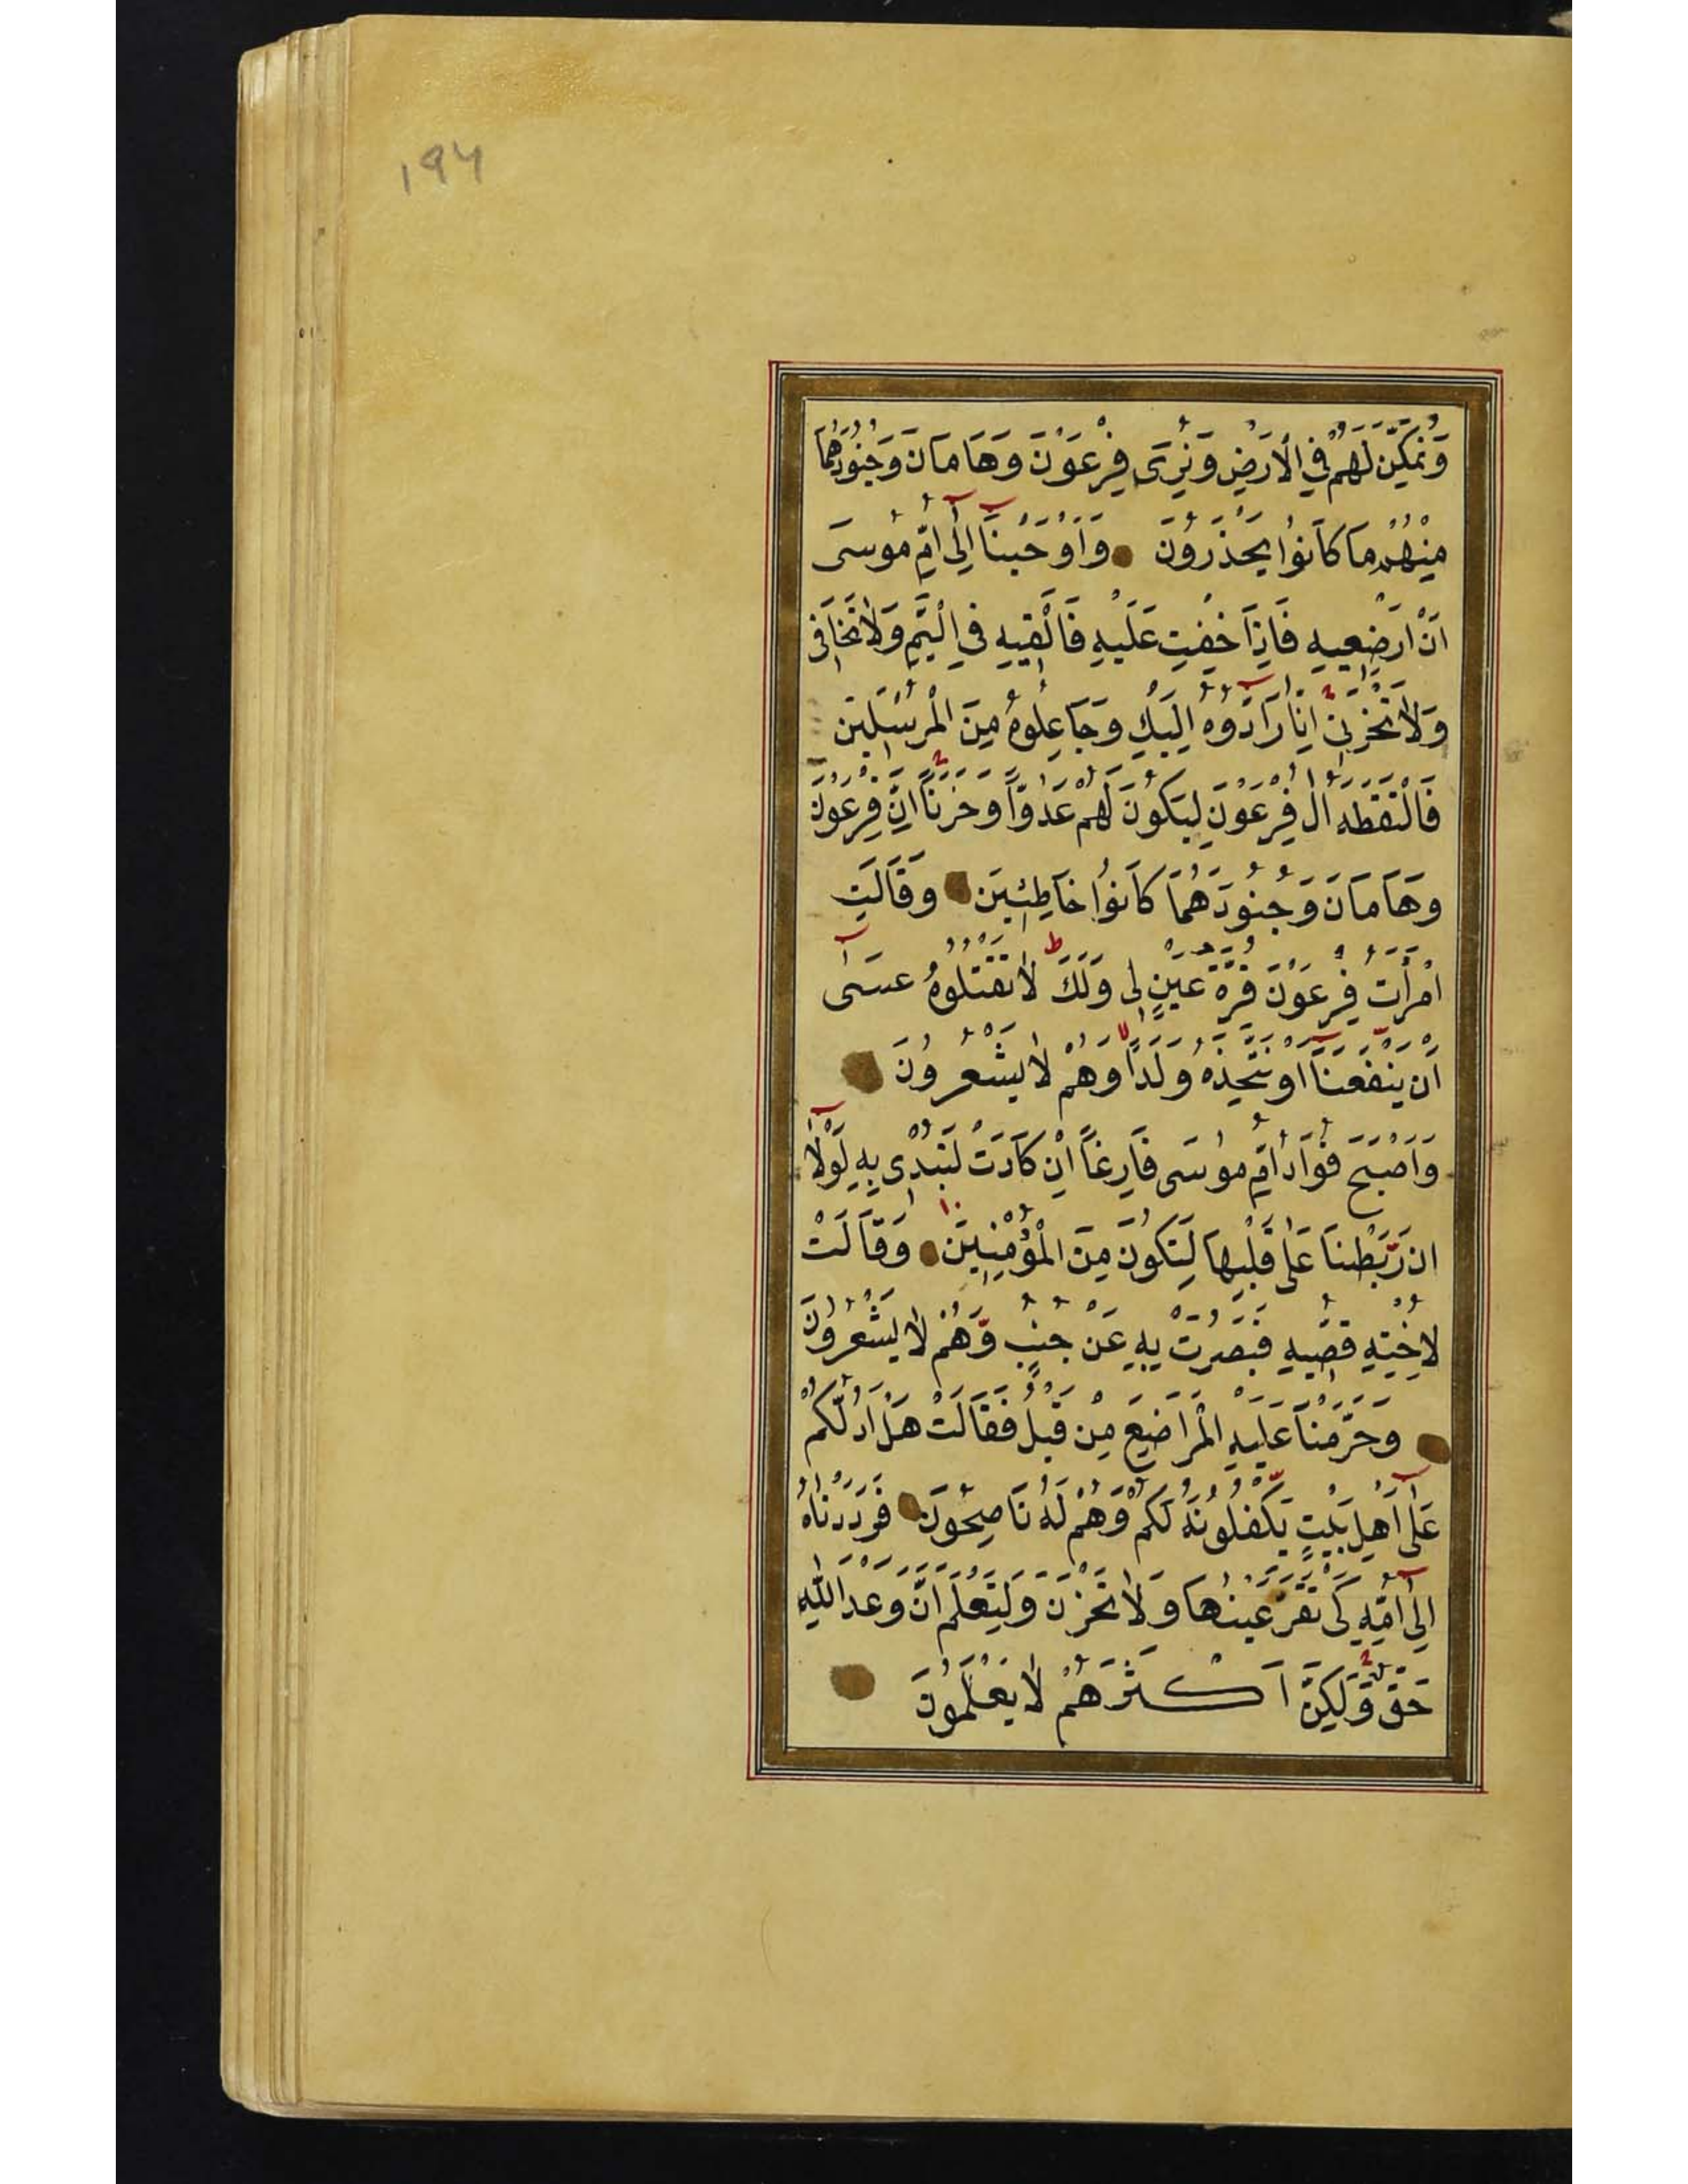 ۱۹۴
وَنُمَكِّنَ لَهُمْ فِي الْاَرْضِ وَنُرِىَ فِرْعَوْنَ وَهَامَانَ وَجُنُودَهُمَا
مِنْهُمْ مَا كَانُوا يَحْذَرُونَ وَاَوْحَيْنَآ اِلٰٓى اُمِّ مُوسَى
اَنْ اَرْضِعِيهِ فَاِذَا خِفْتِ عَلَيْهِ فَاَلْقِيهِ فِي الْيَمِّ وَلَا تَخَافِى
وَلَا تَحْزَنِى اِنَّا رَآدُّوهُ اِلَيْكِ وَجَاعِلُوهُ مِنَ الْمُرْسَلِينَ
فَالْتَقَطَهُ اٰلُ فِرْعَوْنَ لِيَكُونَ لَهُمْ عَدُوًّا وَحَزَنًا اِنَّ فِرْعَوْنَ
وَهَامَانَ وَجُنُودَهُمَا كَانُوا خَاطِئِينَ وَقَالَتِ
امْرَاَتُ فِرْعَوْنَ قُرَّةُ عَيْنٍ لِى وَلَكَ لَا تَقْتُلُوهُ عَسٰٓى
اَنْ يَنْفَعَنَآ اَوْ نَتَّخِذَهُ وَلَدًا وَهُمْ لَا يَشْعُرُونَ
وَاَصْبَحَ فُؤَادُ اُمِّ مُوسَى فَارِغًا اِنْ كَادَتْ لَتُبْدِى بِهِ لَوْلَآ
اَنْ رَبَطْنَا عَلٰى قَلْبِهَا لِتَكُونَ مِنَ الْمُؤْمِنِينَ وَقَالَتْ
لِاُخْتِهِ قُصِّيهِ فَبَصُرَتْ بِهِ عَنْ جُنُبٍ وَّهُمْ لَا يَشْعُرُونَ
وَحَرَّمْنَا عَلَيْهِ الْمَرَاضِعَ مِنْ قَبْلُ فَقَالَتْ هَلْ اَدُلُّكُمْ
عَلٰٓى اَهْلِ بَيْتٍ يَّكْفُلُونَهُ لَكُمْ وَهُمْ لَهُ نَاصِحُونَ فَرَدَدْنَاهُ
اِلٰٓى اُمِّهِ كَىْ تَقَرَّ عَيْنُهَا وَلَا تَحْزَنَ وَلِتَعْلَمَ اَنَّ وَعْدَ اللّٰهِ
حَقٌّ وَّلٰكِنَّ اَكْثَرَهُمْ لَا يَعْلَمُونَ